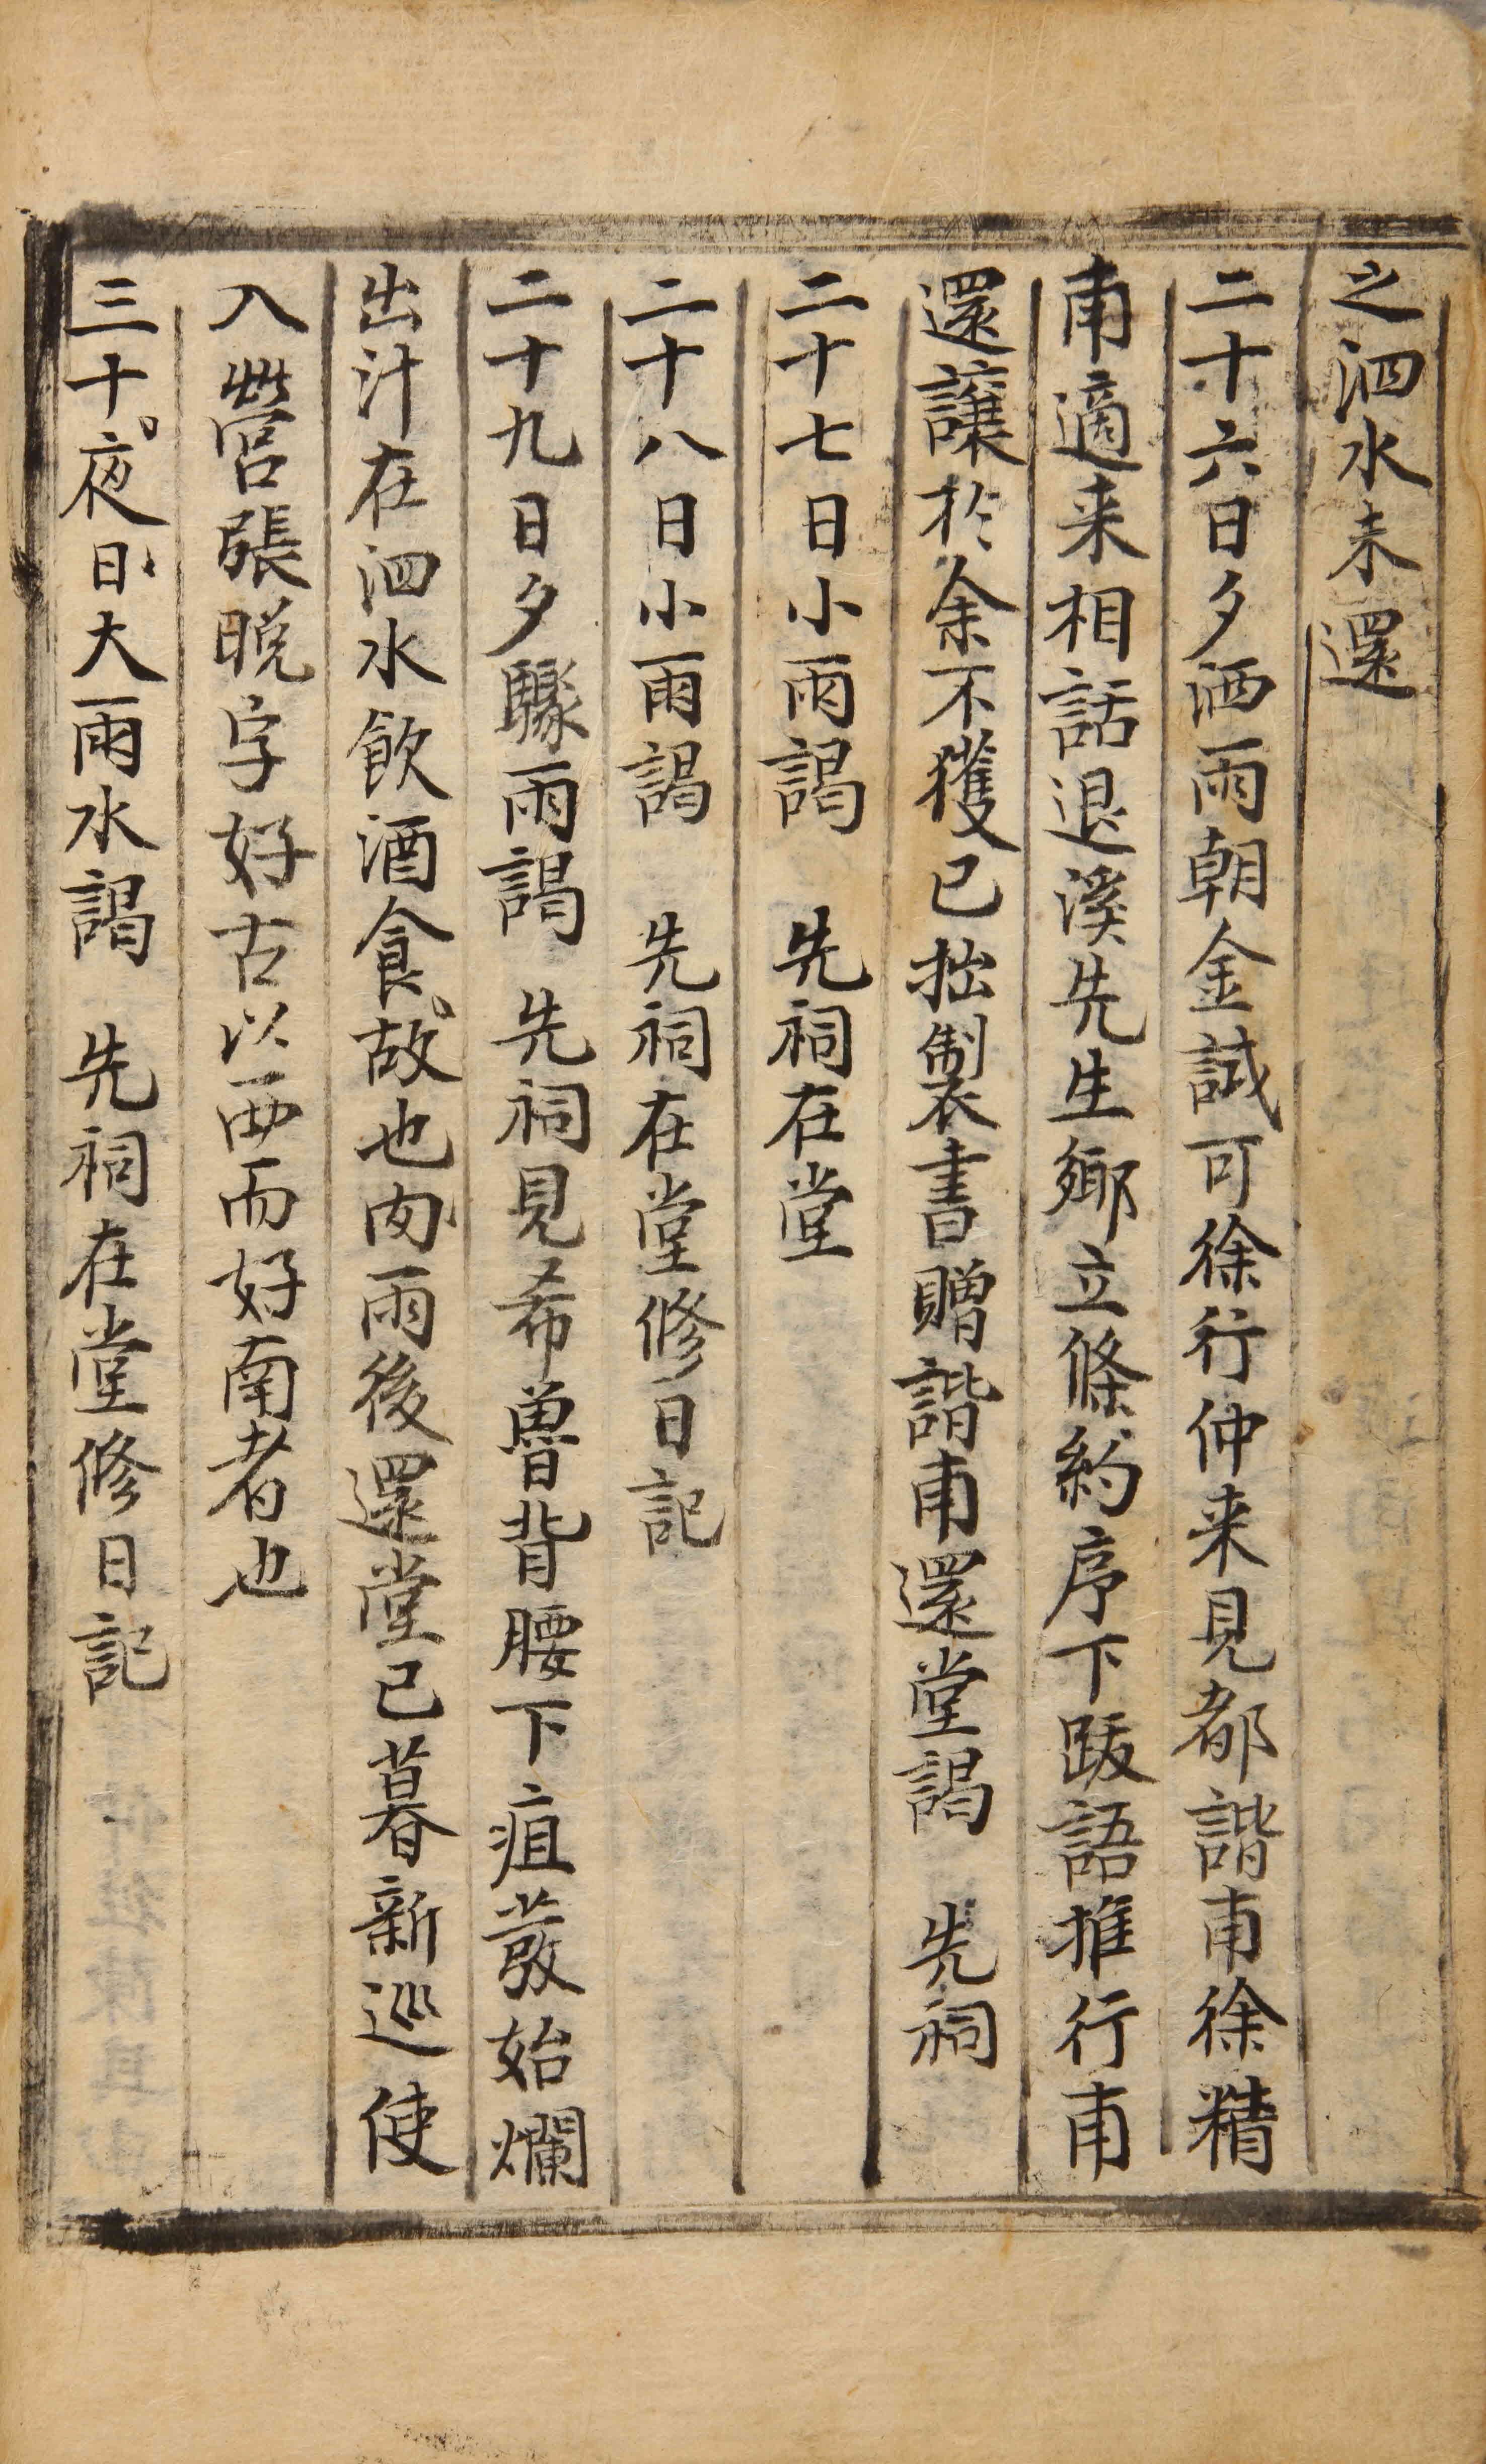 之泗水未還
二十六日夕洒雨朝金誠可徐行仲来見都諧甫徐精
甫適来相話退溪先生鄉立條約序下跋語推行甫
還讓於余不獲已拙製書贈諧甫還堂謁　先祠
二十七日小雨謁　先祠在堂
二十八日小雨謁　先祠在堂修日記
二十九日夕驟雨謁　先祠見希魯背腰下疽發始爛
出汁在泗水飲酒食故也冈雨後還堂已暮新巡使
入營張晩字好古以西而好南者也
三十夜日大雨水謁　先祠在堂修日記